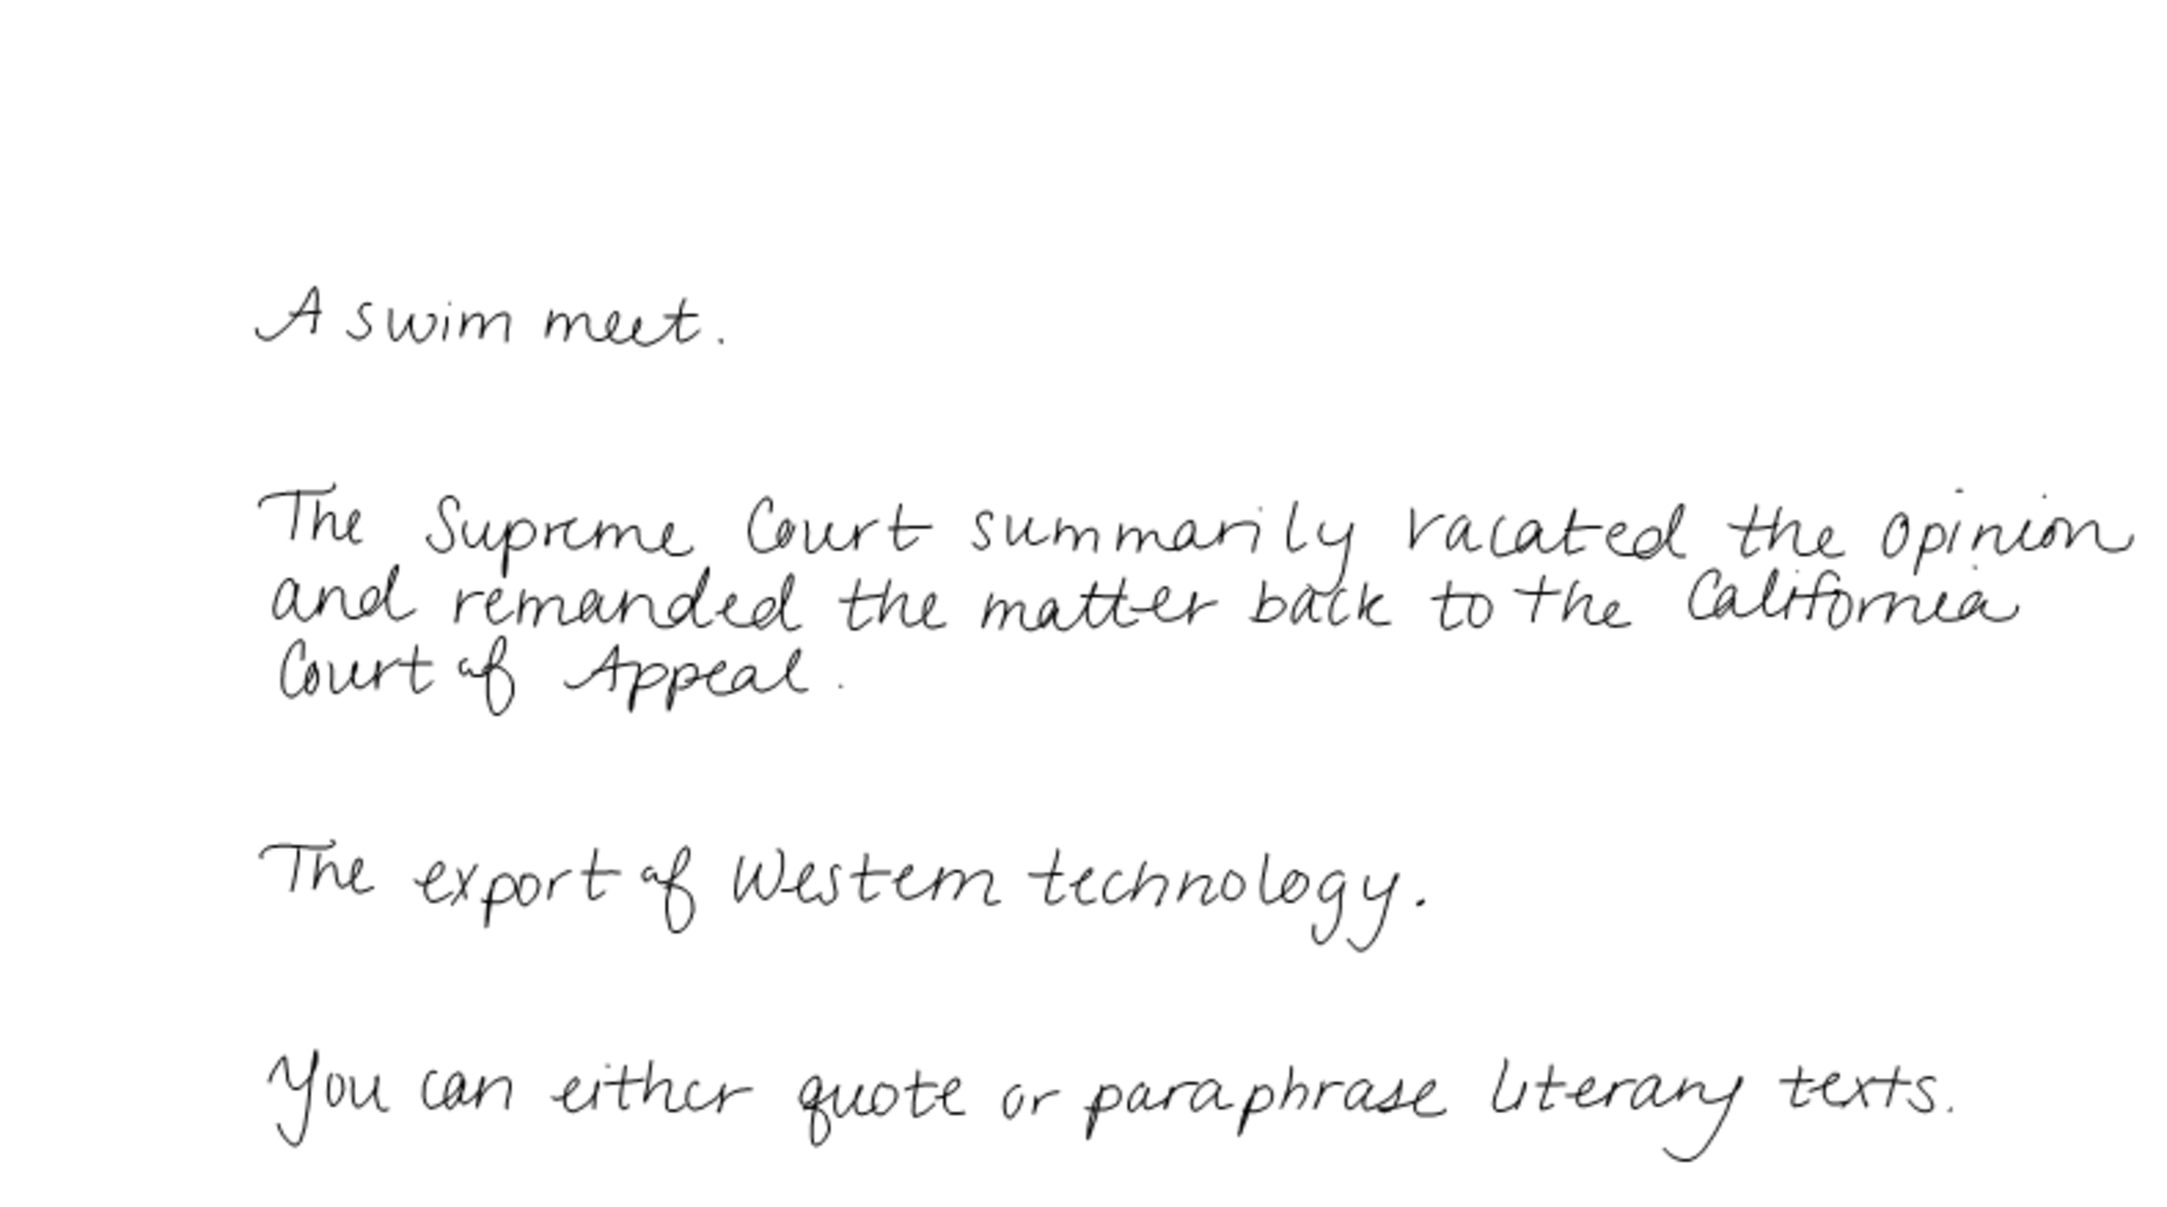 A swim meet.
The Supreme Court summarily vacated the opinion
and remanded the matter back to the California
Court of Appeal.
The export of Western technology.
You can either quote or paraphrase literary texts.